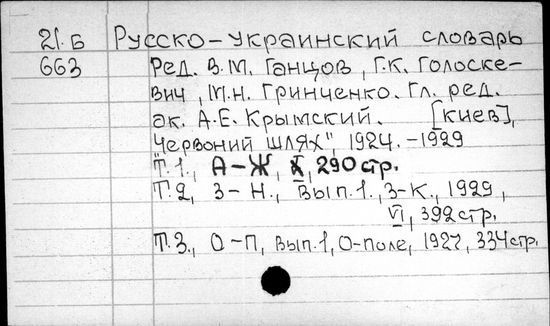 21.Б Русско-украинский словарь
663 Ред. В.М. Ганцов, Г.К. Голоске-
вич, М.Н. Гринченко. Гл. ред.
ак. А.Е. Крымский. [Киев],
"Червоний шлях", 1924.-1929
Т.1, А-Ж, X, 290 стр.
Т.2, З-Н., Вып.1., З-К., 1929,
VI, 392 стр.
Т.3., О-П, Вып.1, О-поле, 1927, 334 стр.